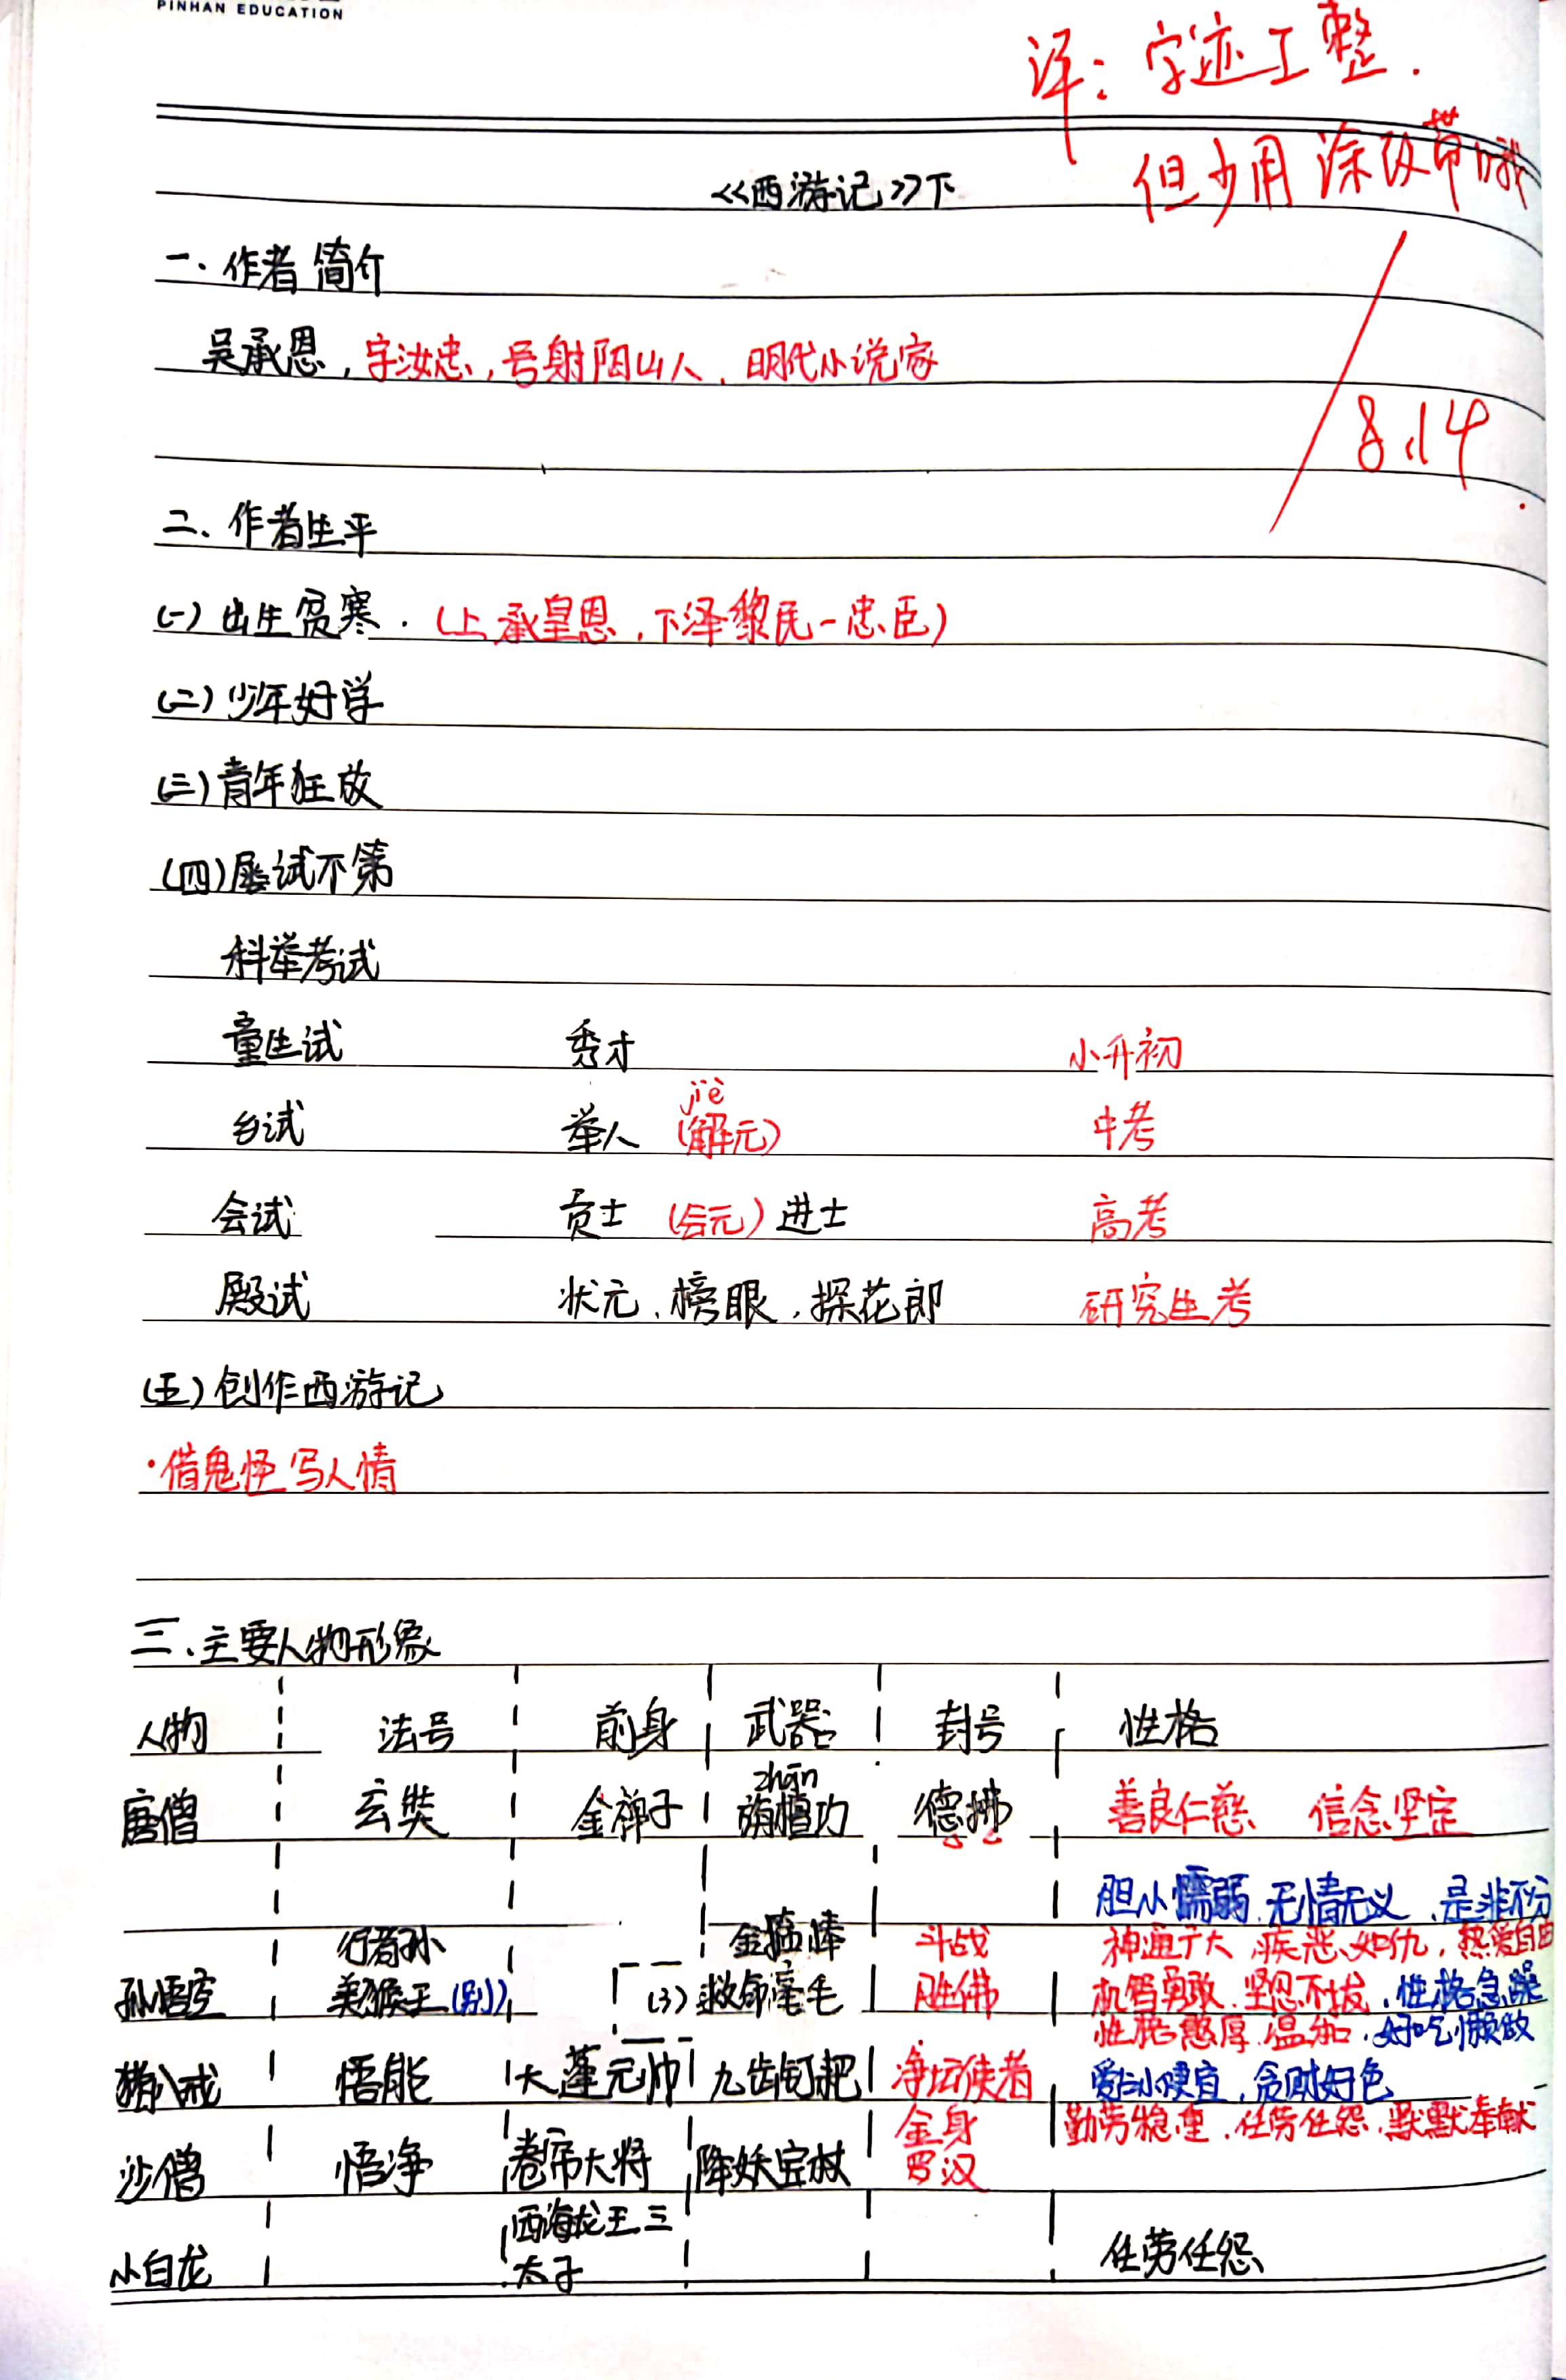 PINHAN EDUCATION
评：字迹工整.
但少用涂改带哦
8.14
<<西游记>>下
一.作者简介
吴承恩,字汝忠,号射阳山人、明代小说家
二、作者生平
(一)出生贫寒.(上承皇恩,下泽黎民-忠臣)
(二)少年好学
(三)青年狂放
(四)屡试不第
科举考试
童生试 秀才 小升初
jiè
乡试 举人 (解元) 中考
会试 贡士 (会元) 进士 高考
殿试 状元、榜眼,探花郎 研究生考
(五)创作西游记
·借鬼怪写人情
三、主要人物形象
人物 法号 前身 武器 封号 性格
zhān
唐僧 玄奘 金禅子 旃檀功 德拂 善良仁慈 信念坚定
胆小懦弱 无情无义、是非不分
行者孙 金箍棒 斗战 神通广大、疾恶如仇,热爱自由
孙悟空 美猴王(别) (3)救命毫毛 胜佛 机智勇敢、坚忍不拔、性格急躁
性格憨厚、温和、好吃懒做
猪八戒 悟能 天蓬元帅 九齿钉耙 净坛使者 爱占小便宜,贪财好色
金身 勤劳稳重、任劳任怨、默默奉献
沙僧 悟净 卷帘大将 降妖宝杖 罗汉
西海龙王三
小白龙 太子 任劳任怨